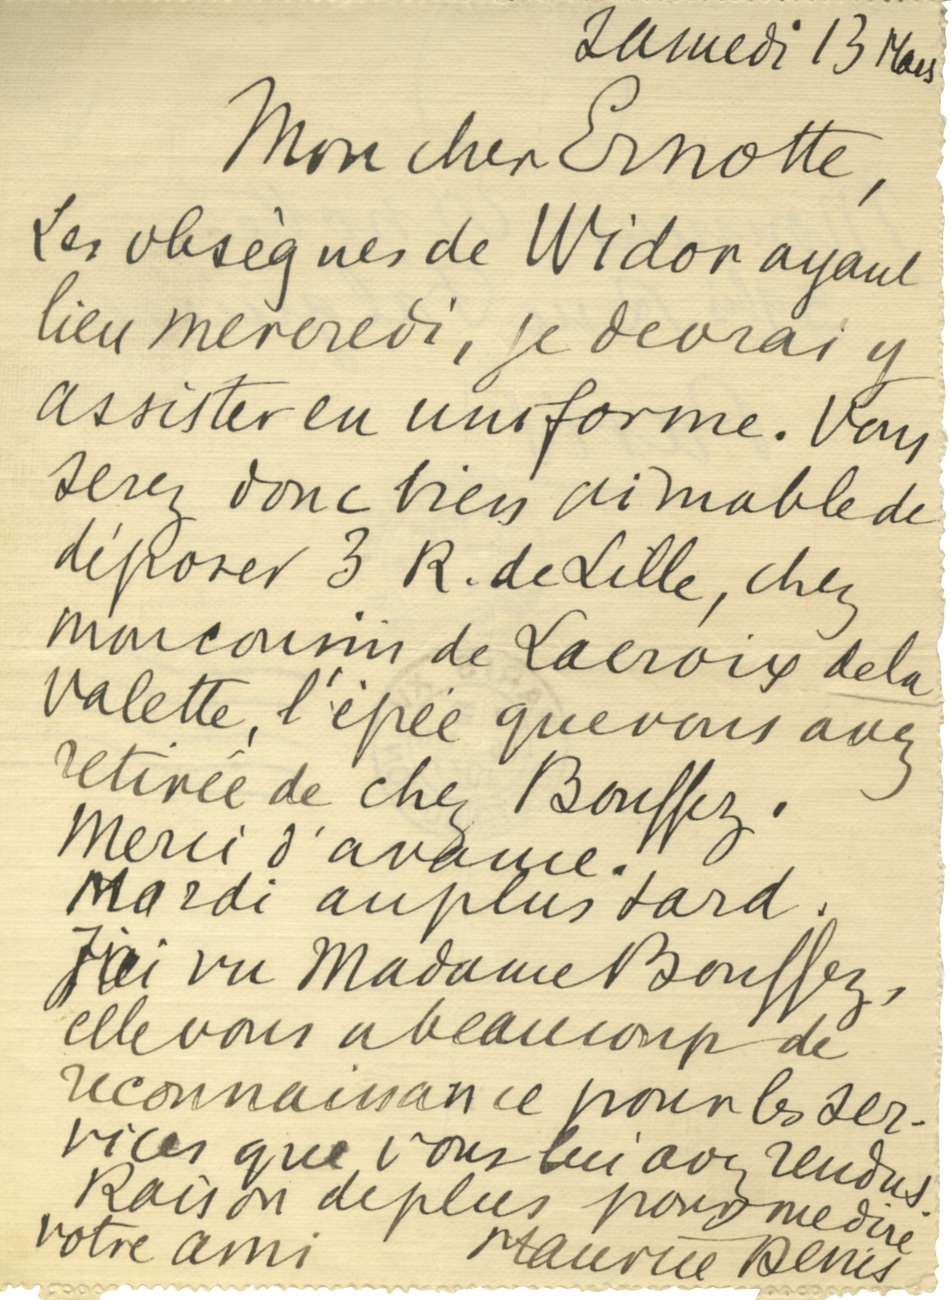 Samedi 13 Mars
Mon cher Ernotte,
Les obsèques de Widor ayant
lieu mercredi, je devrai y
assister en uniforme. Vous
serez donc bien aimable de
déposer 3 R. de Lille, chez
mon cousin de Lacroix de la
Valette, l'épée que vous avez
retirée de chez Bouffez.
Merci d'avance.
Mardi au plus tard.
J'ai vu Madame Bouffez,
elle vous a beaucoup de
reconnaissance pour les ser-
vices que vous lui avez rendus.
Raison de plus pour me dire
votre ami Maurice Denis